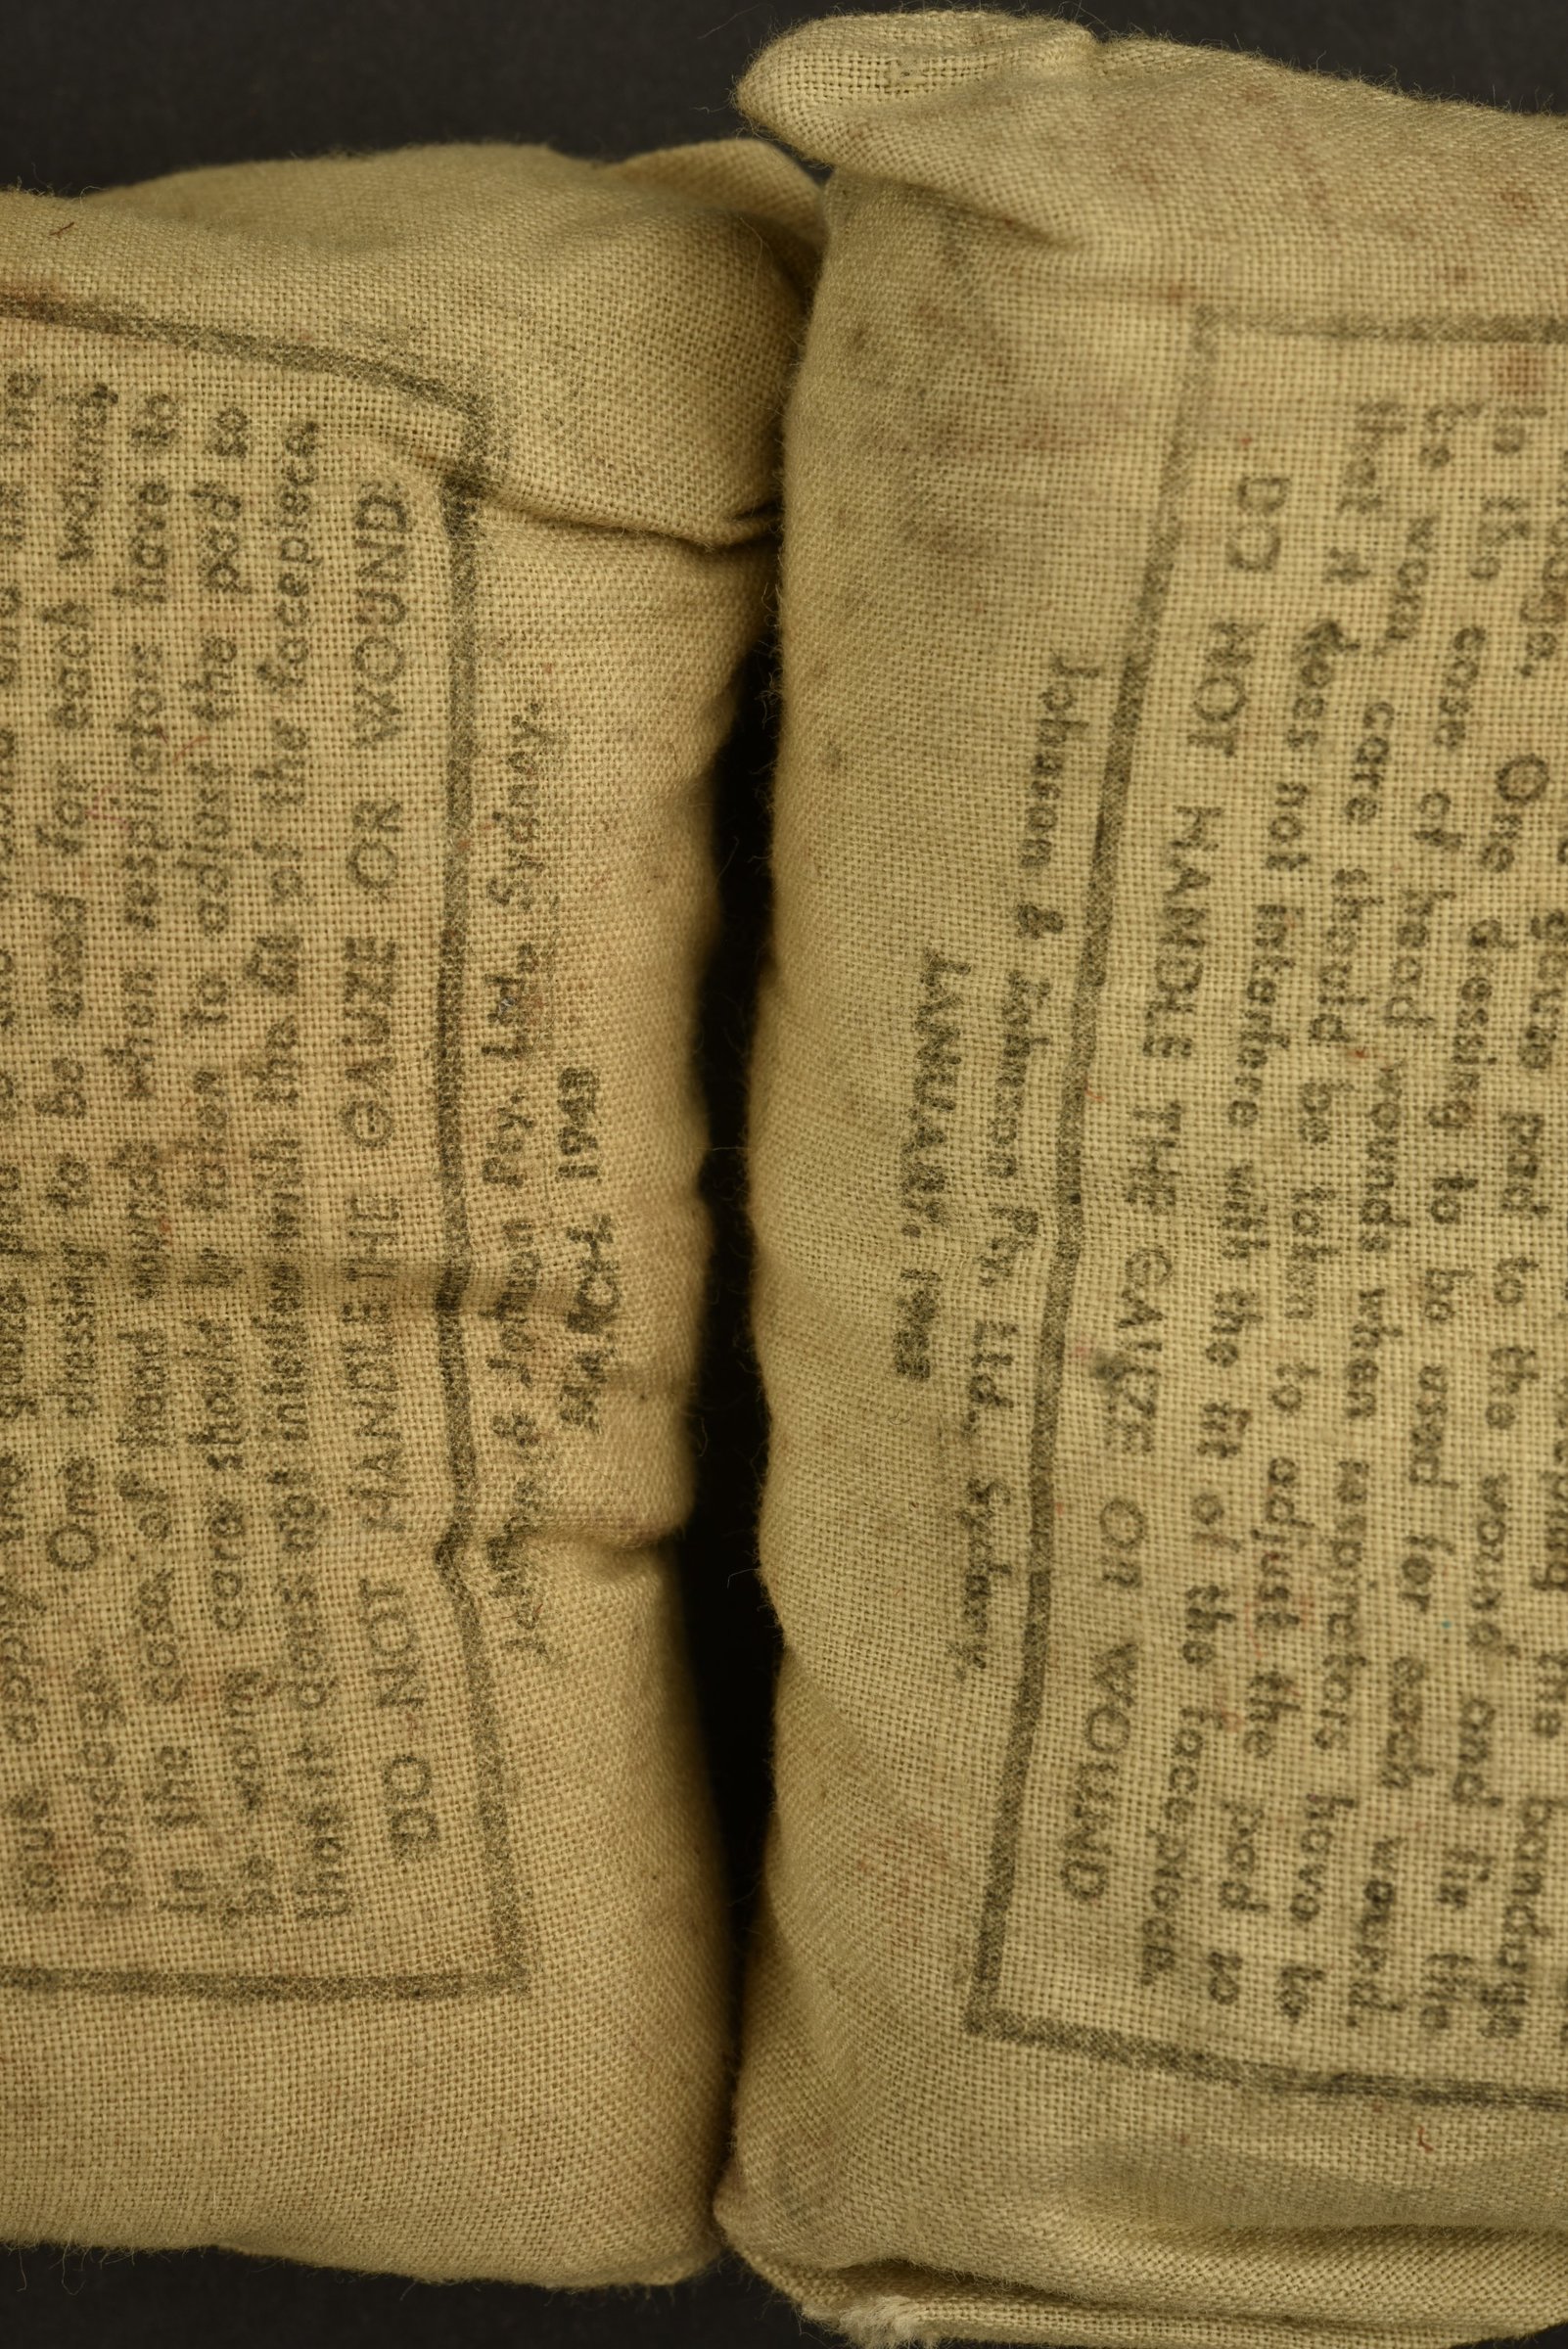 bandage. One dressing to be used for each wound.
In the case of head wounds when respirators have to
be worn, care should be taken to adjust the pad so
that it does not interfere with the fit of the facepiece.
DO NOT HANDLE THE GAUZE OR WOUND
Johnson & Johnson Pty. Ltd., Sydney.
MARCH 1943
gauze pad to the wound and fix the
One dressing to be used for each wound.
In the case of head wounds when respirators have to
be worn, care should be taken to adjust the pad so
that it does not interfere with the fit of the facepiece.
DO NOT HANDLE THE GAUZE OR WOUND
Johnson & Johnson Pty. Ltd., Sydney.
JANUARY,